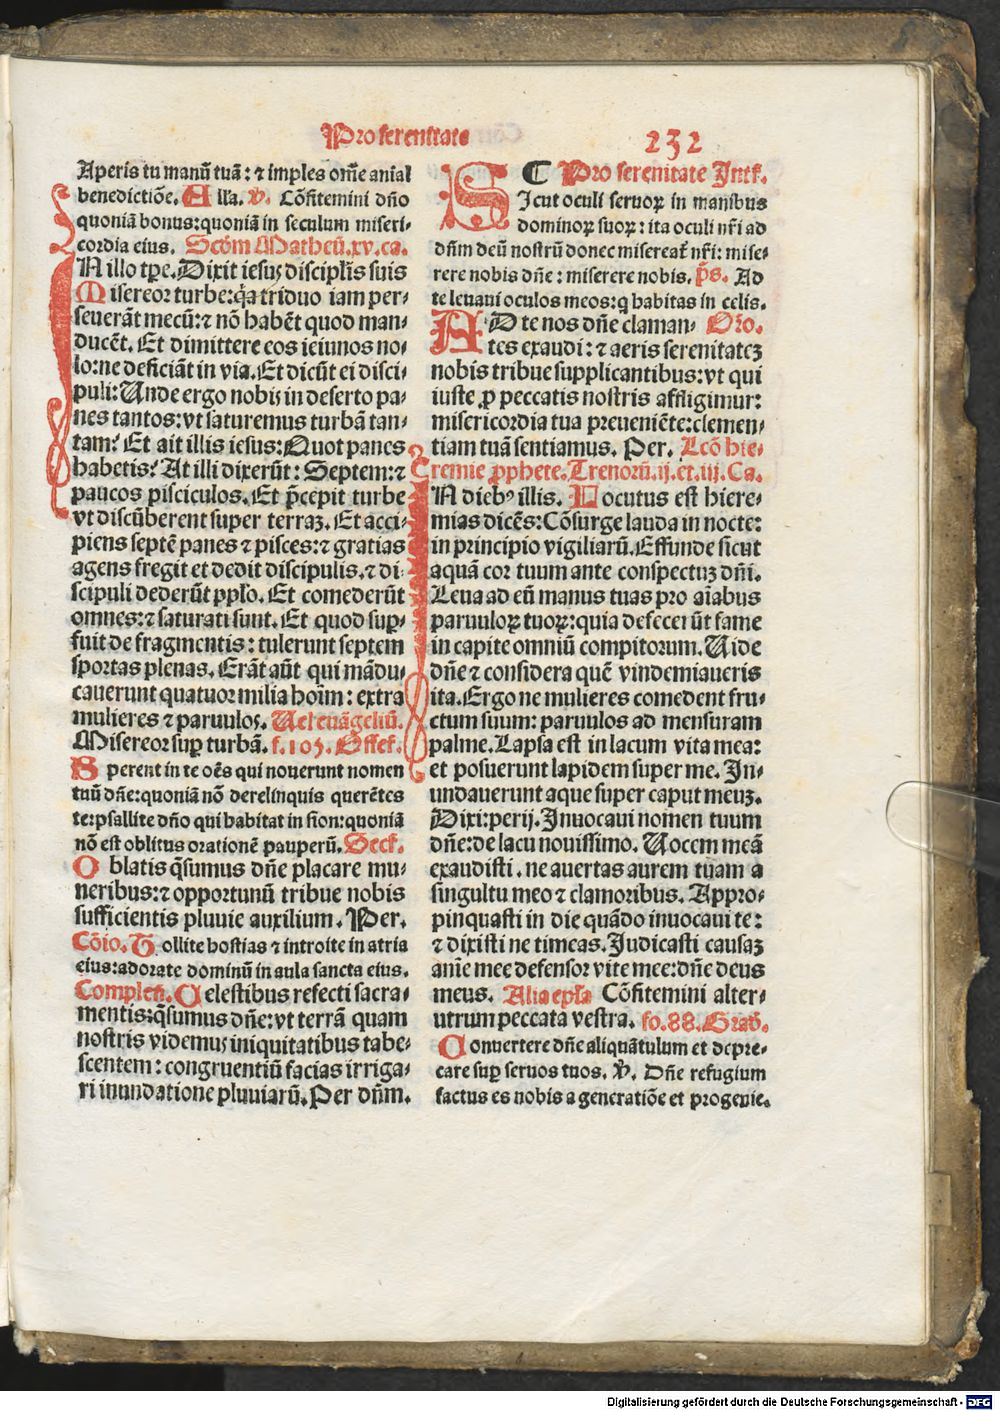 Pro serenitate
232
Aperis tu manū tuā: ⁊ imples om̄e anial
benedictiōe. Alľa. ℣. Cōfitemini dn̄o
quoniā bonus: quoniā in seculum miseri⸗
cordia eius. Scďm Matheū. xv. ca.
IN illo tꝑe. Dixit iesus disciplis suis
Misereor turbe: q̄a triduo iam per⸗
seuerāt mecū: ⁊ nō habēt quod man⸗
ducēt. Et dimittere eos ieiunos no⸗
lo: ne deficiāt in via. Et dicūt ei disci⸗
puli: Unde ergo nobis in deserto pa⸗
nes tantos: vt saturemus turbā tan⸗
tam? Et ait illis iesus: Quot panes
habetis? At illi dixerūt: Septem: ⁊
paucos pisciculos. Et p̄cepit turbe
vt discūberent super terraꝫ. Et acci⸗
piens septē panes ⁊ pisces: ⁊ gratias
agens fregit et dedit discipulis. ⁊ di⸗
scipuli dederūt pplo. Et comederūt
omnes: ⁊ saturati sunt. Et quod suꝑ⸗
fuit de fragmentis: tulerunt septem
sportas plenas. Erāt aūt qui mādu⸗
cauerunt quatuor milia hoīm: extra
mulieres ⁊ paruulos. Uel euāgeliū.
Misereor suꝑ turbā. f. 105. Offer̄.
Sperent in te oēs qui nouerunt nomen
tuū dn̄e: quoniā nō derelinquis querētes
te: psallite dn̄o qui habitat in sion: quoniā
nō est oblitus orationē pauperū. Secr̄.
Oblatis q̄sumus dn̄e placare mu⸗
neribus: ⁊ opportunū tribue nobis
sufficientis pluuie auxilium. Per.
Cōio. Tollite hostias ⁊ introite in atria
eius: adorate dominū in aula sancta eius.
Compleñ. Celestibus refecti sacra⸗
mentis: q̄sumus dn̄e: vt terrā quam
nostris videmus iniquitatibus tabe⸗
scentem: congruentiū facias irriga⸗
ri inundatione pluuiarū. Per dn̄m.
¶ Pro serenitate Intr̄.
SIcut oculi seruoꝝ in manibus
dominoꝝ suoꝝ: ita oculi nr̄i ad
dn̄m deū nostrū donec misereat̄ nr̄i: mise⸗
rere nobis dn̄e: miserere nobis. p̄s. Ad
te leuaui oculos meos: q̄ habitas in celis.
AD te nos dn̄e claman⸗ Or̄o.
tes exaudi: ⁊ aeris serenitateꝫ
nobis tribue supplicantibus: vt qui
iuste ꝓ peccatis nostris affligimur:
misericordia tua preueniēte: clemen⸗
tiam tuā sentiamus. Per. Lcō hie⸗
remie ꝓphete. Trenorū. ij. et. iij. Ca.
IN diebꝰ illis. Locutus est hiere⸗
mias dicēs: Cōsurge lauda in nocte:
in principio vigiliarū. Effunde sicut
aquā cor tuum ante conspectuꝫ dn̄i.
Leua ad eū manus tuas pro aīabus
paruuloꝝ tuoꝝ: quia defecerūt fame
in capite omniū compitorum. Uide
dn̄e ⁊ considera quē vindemiaueris
ita. Ergo ne mulieres comedent fru⸗
ctum suum: paruulos ad mensuram
palme. Lapsa est in lacum vita mea:
et posuerunt lapidem super me. In⸗
undauerunt aque super caput meuꝫ.
Dixi: perij. Inuocaui nomen tuum
dn̄e: de lacu nouissimo. Uocem meā
exaudisti. ne auertas aurem tuam a
singultu meo ⁊ clamoribus. Appro⸗
pinquasti in die quādo inuocaui te:
⁊ dixisti ne timeas. Judicasti causaꝫ
anīe mee defensor vite mee: dn̄e deus
meus. Alia epl̄a Cōfitemini alter⸗
utrum peccata vestra. fo. 88. Grad̄.
Conuertere dn̄e aliquātulum et depre⸗
care suꝑ seruos tuos. ℣. Dn̄e refugium
factus es nobis a generatiōe et progenie.
Digitalisierung gefördert durch die Deutsche Forschungsgemeinschaft - DFG